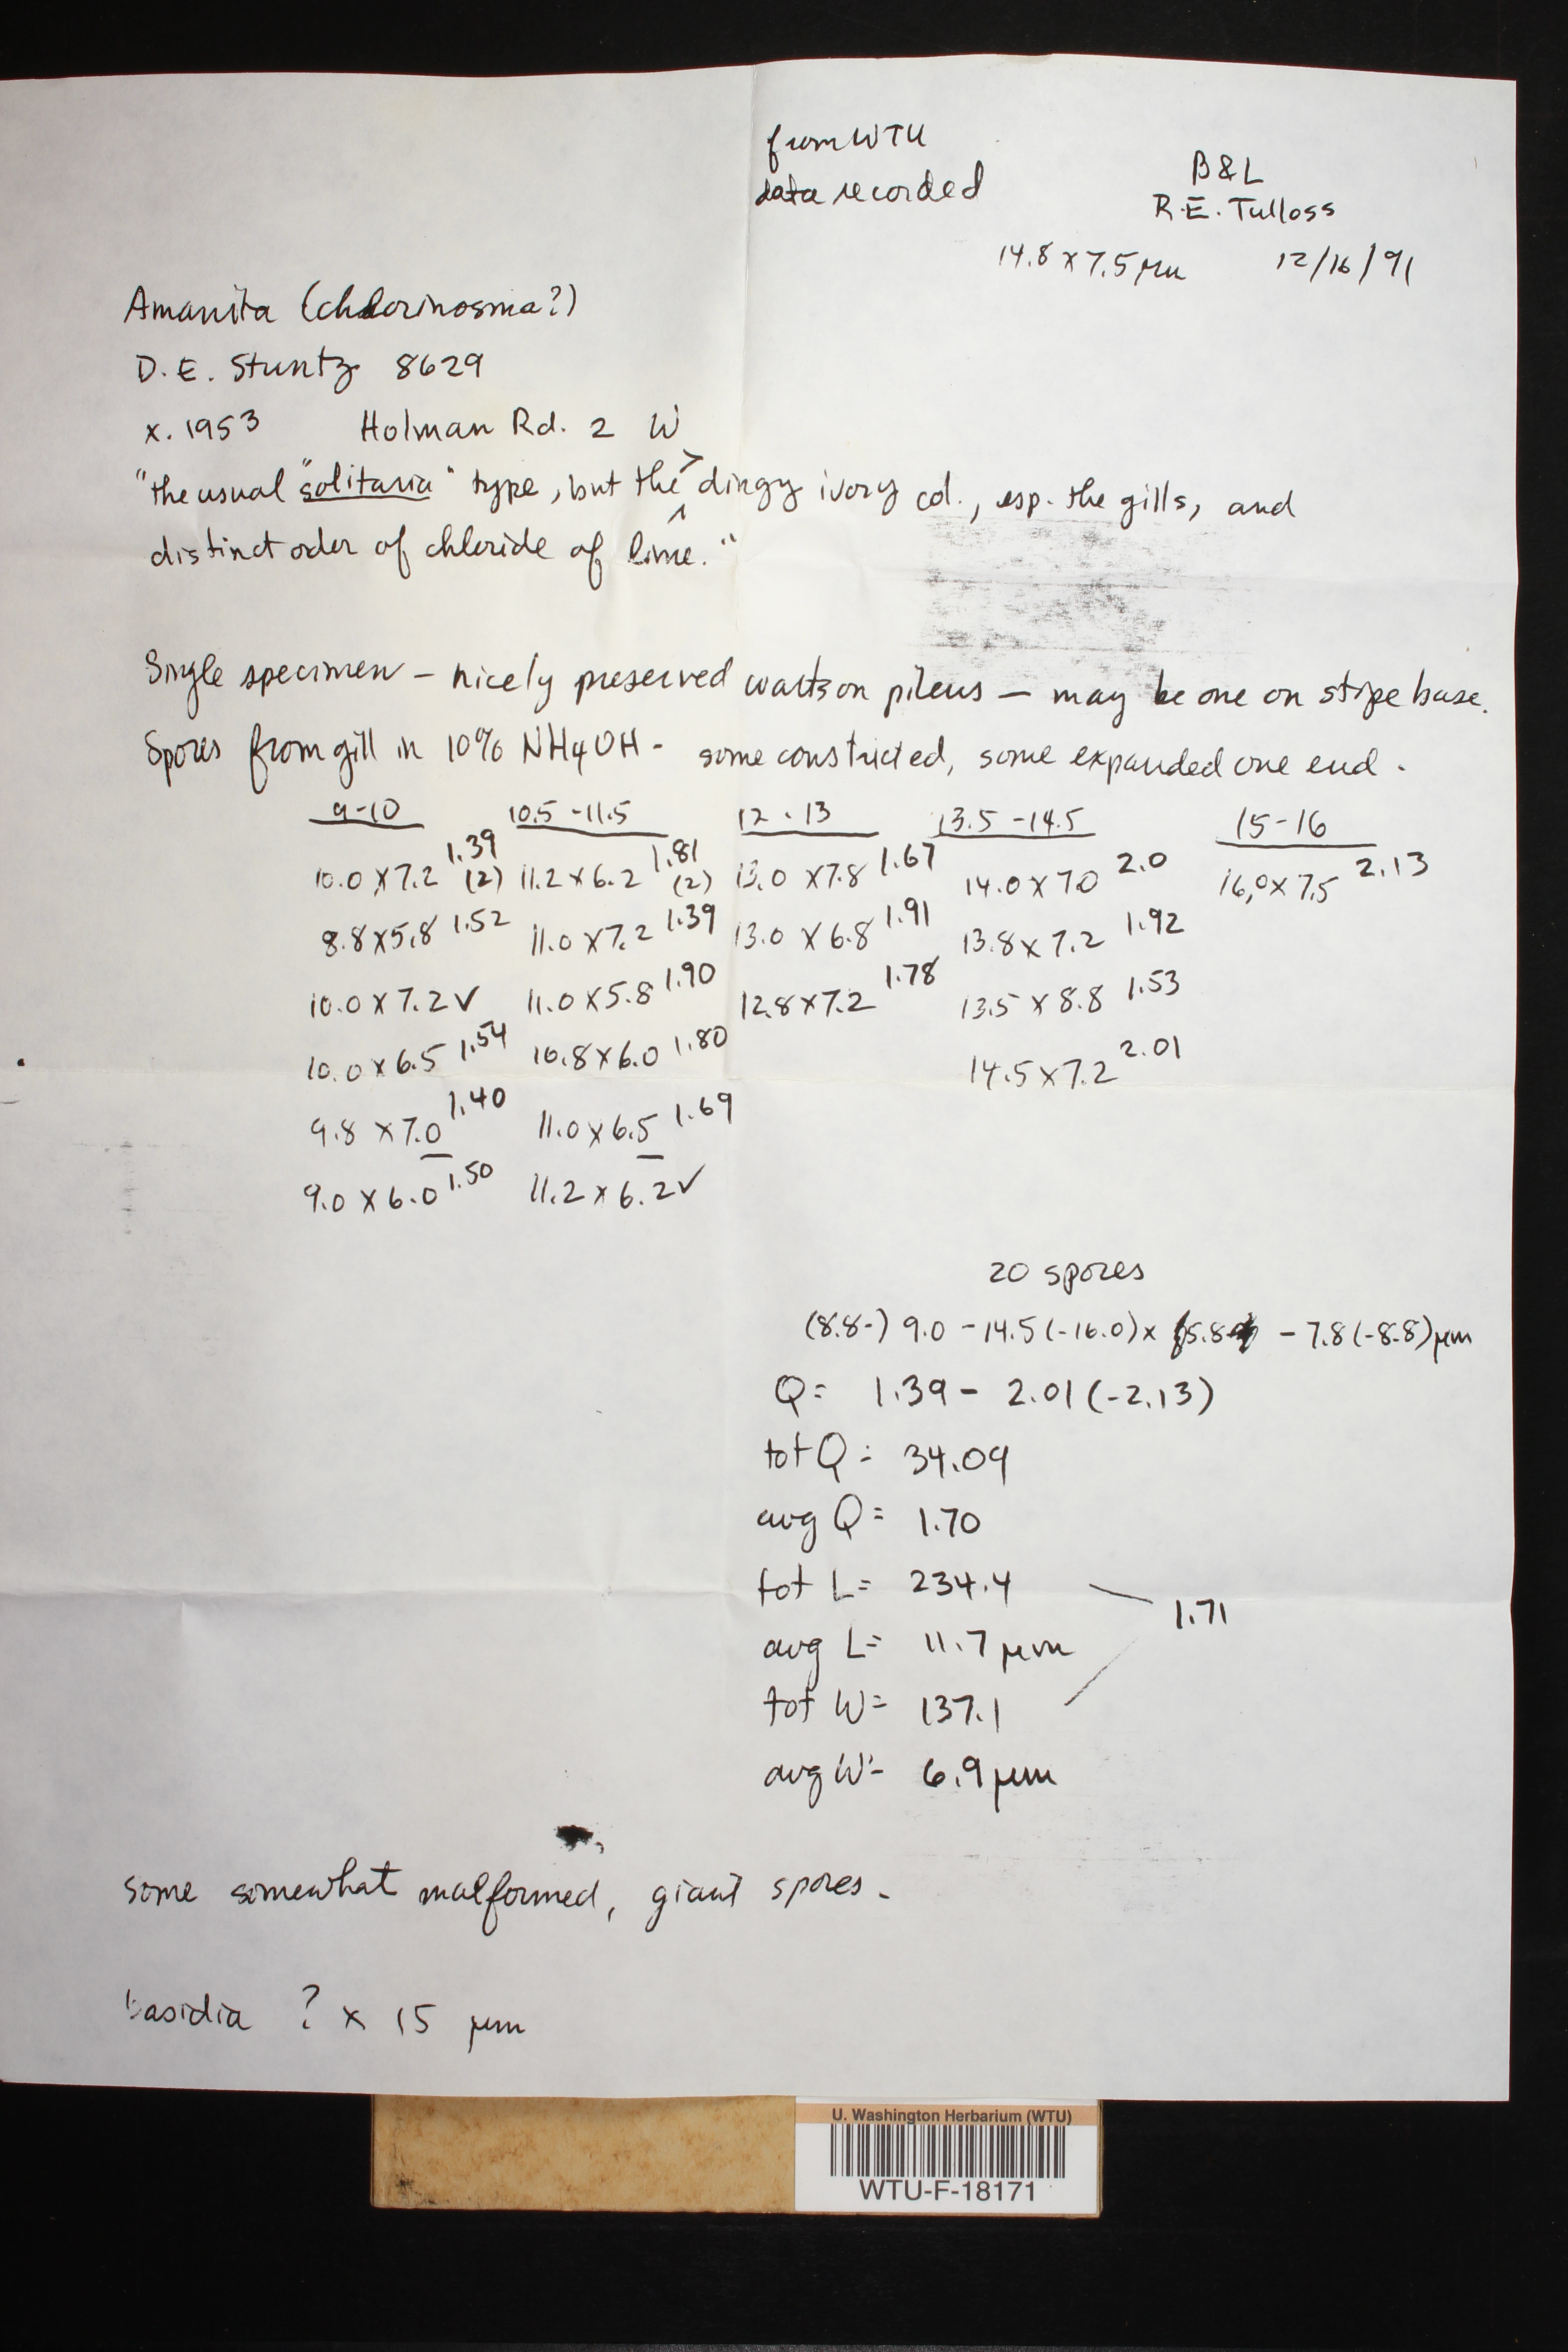 from WTU
data recorded
B & L
R.E. Tulloss
14.8 x 7.5 µm 12/16/91
Amanita (chlorinosma?)
D.E. Stuntz 8629
x. 1953 Holman Rd. 2 W
"the usual "solitaria" type, but the > dingy ivory col., esp. the gills, and
distinct oder of chloride of lime."
Single specimen – nicely preserved warts on pileus – may be one on stipe base.
Spores from gill in 10% NH4OH - some constricted, some expanded one end.
9-10 10.5-11.5 12-13 13.5-14.5 15-16
10.0 x 7.2 1.39 (2) 11.2 x 6.2 1.81 (2) 13.0 x 7.8 1.67 14.0 x 7.0 2.0 16.0 x 7.5 2.13
8.8 x 5.8 1.52 11.0 x 7.2 1.39 13.0 x 6.8 1.91 13.8 x 7.2 1.92
10.0 x 7.2 ✓ 11.0 x 5.8 1.90 12.8 x 7.2 1.78 13.5 x 8.8 1.53
10.0 x 6.5 1.54 10.8 x 6.0 1.80 14.5 x 7.2 2.01
9.8 x 7.0 1.40 11.0 x 6.5 1.69
9.0 x 6.0 1.50 11.2 x 6.2 ✓
20 spores
(8.8-) 9.0 - 14.5 (-16.0) x 5.8 - 7.8 (-8.8) µm
Q = 1.39 - 2.01 (-2.13)
tot Q = 34.09
avg Q = 1.70
tot L = 234.4
1.71
avg L = 11.7 µm
tot W = 137.1
avg W = 6.9 µm
some somewhat malformed, giant spores.
basidia ? x 15 µm
U. Washington Herbarium (WTU)
WTU-F-18171